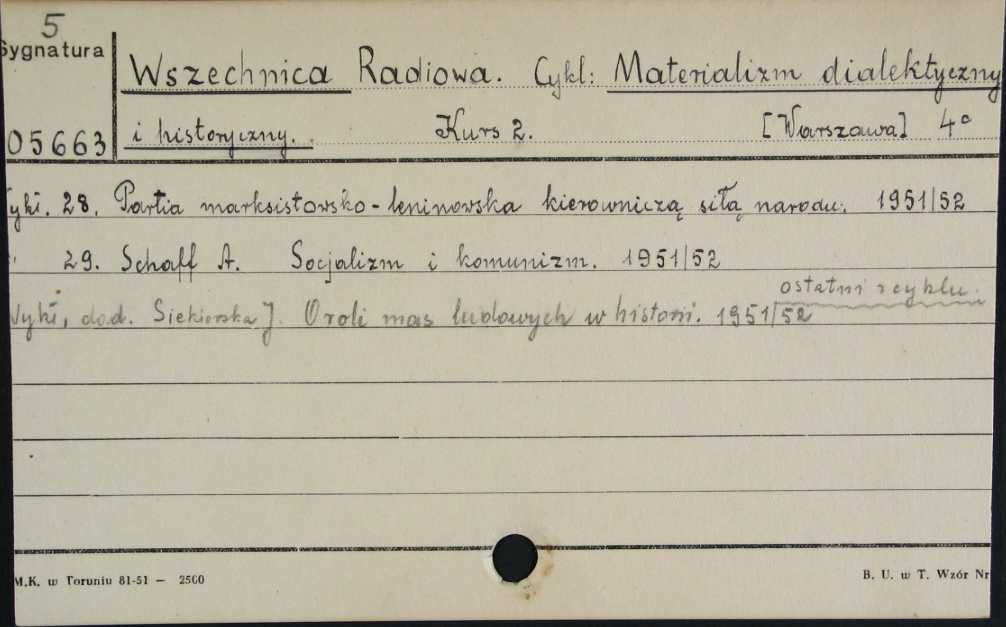 5
Sygnatura
Wszechnica Radiowa. Cykl: Materializm dialektyczny
05663 i historyczny. Kurs 2. [Warszawa] 4°
yki. 28. Partia marksistowsko-leninowska kierowniczą siłą narodu. 1951/52
29. Schaff A. Socjalizm i komunizm. 1951/52
ostatni z cyklu.
Wykł, dod. Siekierska J. O roli mas ludowych w historii. 1951/52
M.K. w Toruniu 81-51 — 2500
B. U. w T. Wzór Nr